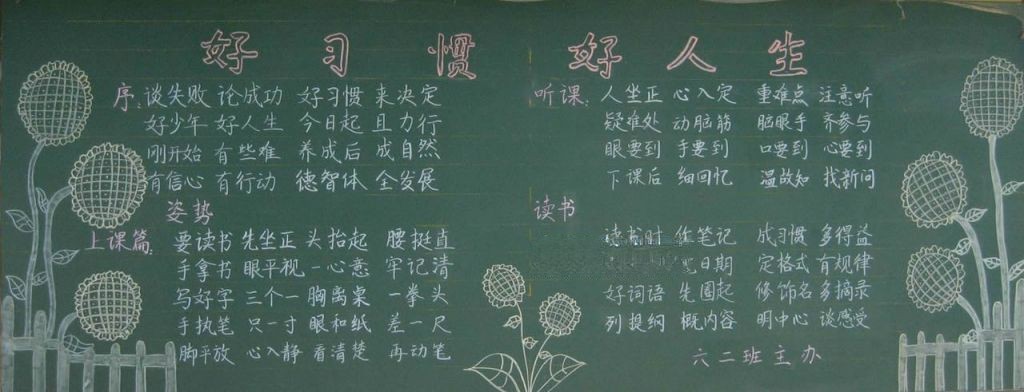 好习惯 好人生
序: 谈失败 论成功 好习惯 来决定
好少年 好人生 今日起 且力行
刚开始 有些难 养成后 成自然
有信心 有行动 德智体 全发展
姿势
上课篇: 要读书 先坐正 头抬起 腰挺直
手拿书 眼平视 一心意 牢记清
写好字 三个一 胸离桌 一拳头
手执笔 只一寸 眼和纸 差一尺
脚平放 心入静 看清楚 再动笔
听课: 人坐正 心入定 重难点 注意听
疑难处 动脑筋 脑眼手 齐参与
眼要到 手要到 口要到 心要到
下课后 细回忆 温故知 找新问
读书
读书时 作笔记 成习惯 多得益
日期 定格式 有规律
好词语 先圈起 修饰名 多摘录
列提纲 概内容 明中心 谈感受
六二班主办